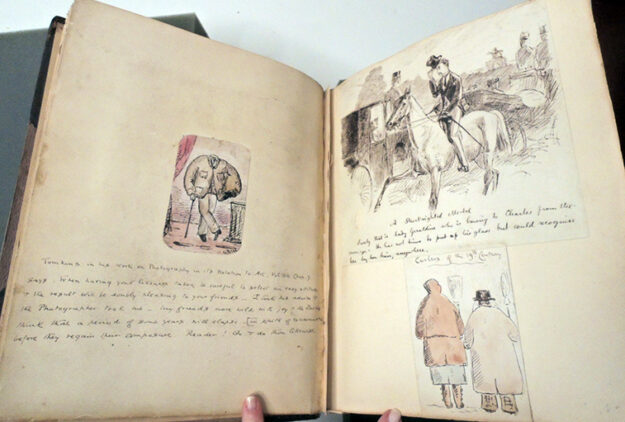 Tomkins in his work on Photography in its Relation to Art, Vol Chap 9
says. When having your likeness taken be careful to select an easy attitude
& the result will be doubly pleasing to your friends — I took his advice &
the Photographer took me — my friends were wild with joy & the
think that a period of some years must elapse
before they regain their composure. Reader! do thou likewise
A Shortsighted
Surely that is Lady Geraldine who is bowing to Charles from the
He has not time to put up his glass but could recognise
her by her hair, anywhere.
Costers of the 19th Century